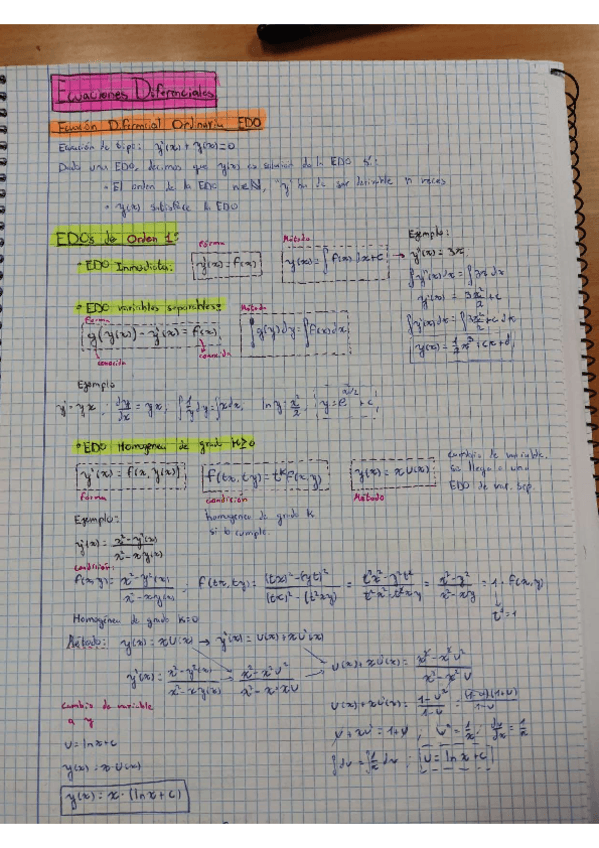 Ecuaciones Diferenciales
Ecuación Diferencial Ordinaria EDO
Ecuación de tipo: y'(x) + y(x) = 0
Dada una EDO, decimos que y(x) es solución de la EDO si:
· El orden de la EDO n∈ℕ, "y ha de ser derivable n veces
· y(x) satisface la EDO
EDOs de Orden 1:
Forma Método Ejemplo:
· EDO Inmediatas: y'(x) = f(x) y(x) = ∫ f(x) dx + c → y''(x) = 3x
∫y''(x)dx = ∫3x dx
y'(x) = 3x²/2 + c
· EDO variables separables: Método
Forma
g(y(x)) - y'(x) = f(x) ∫g(y)dy = ∫f(x)dx
∫y'(x)dx = ∫3x²/2 + c dx
conocida conocida
y(x) = 1/2 x³ + cx + d
Ejemplo
y' = yx ; dy/dx = yx ; ∫1/y dy = ∫x dx, ln y = x²/2 ; y = e^(x²/2) + c
· EDO Homogénea de grado K≥0
y'(x) = f(x, y(x)) f(tx, ty) = t^k f(x, y) y(x) = x u(x)
cambio de variable.
se llega a una
EDO de var. sep.
Forma condición Método
Ejemplo: homogénea de grado K
si lo cumple.
y'(x) = (x² - y²(x))/(x² - xy(x))
condición:
f(x,y) = (x² - y²(x))/(x² - xy(x)) ; f(tx, ty) = ((tx)² - (yt)²)/((tx)² - (t²xy)) = (t²x² - y²t²)/(t²x² - t²xy) = (x² - y²)/(x² - xy) = 1 · f(x,y)
t⁰ = 1
Homogénea de grado K=0
Método: y(x) = x u(x) → y'(x) = u(x) + x u'(x)
y'(x) = (x² - y²(x))/(x² - xy(x)) → (x² - x²u²)/(x² - x·xu) → u(x) + xu'(x) = (x² - x²u²)/(x² - x²u)
Cambio de variable
a y
u(x) + xu'(x) = (1 - u²)/(1 - u) = ((1-u)(1+u))/(1-u)
u = ln x + c
u + xu' = 1 + u ; u' = 1/x ; du/dx = 1/x
y(x) = x · u(x)
∫du = ∫1/x dx ; u = ln x + c
y(x) = x · (ln x + c)